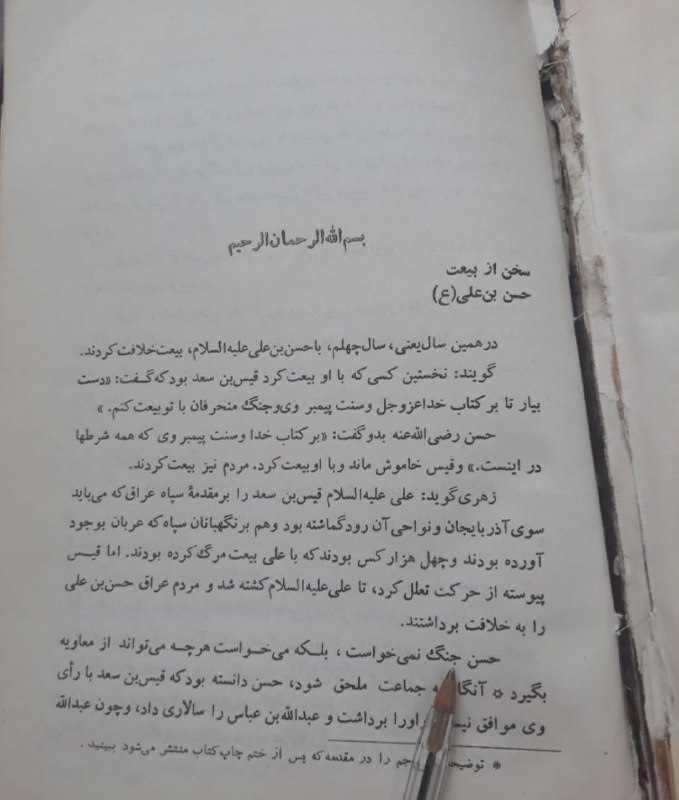 بسم‌الله‌الرحمان‌الرحیم
سخن از بیعت
حسن بن‌علی(ع)
درهمین سال‌یعنی، سال‌چهلم، باحسن‌بن‌علی‌علیه‌السلام، بیعت‌خلافت‌کردند.
گویند: نخستین کسی‌که با او بیعت‌کرد قیس‌بن سعد بودکه‌گفت: «دست
بیار تا بر کتاب خداعزوجل وسنت پیمبر وی‌وجنگ منحرفان با توبیعت‌کنم. »
حسن رضی‌الله‌عنه بدوگفت: «برکتاب خدا وسنت پیمبر وی که همه شرطها
در اینست.» وقیس خاموش ماند وبا اوبیعت‌کرد. مردم نیز بیعت‌کردند.
زهری‌گوید: علی علیه‌السلام قیس‌بن سعد را برمقدمهٔ سپاه عراق‌که می‌باید
سوی‌آذربایجان ونواحی‌آن رودگماشته بود وهم برنگهبانان سپاه‌که عربان بوجود
آورده بودند وچهل هزارکس بودندکه با علی بیعت مرگ‌کرده بودند. اما قیس
پیوسته از حرکت تعلل‌کرد، تا علی‌علیه‌السلام‌کشته شد و مردم عراق حسن‌بن‌علی
را به خلافت برداشتند.
حسن جنگ نمی‌خواست ، بلکه می‌خواست هرچه می‌تواند از معاویه
بگیرد * جماعت ملحق شود، حسن دانسته بودکه قیس‌بن سعد با رأی
وی موافق برداشت و عبدالله‌بن عباس را سالاری داد، وچون عبدالله
* را در مقدمه‌که پس از ختم چاپ‌کتاب منتشر می‌شود ببینید .